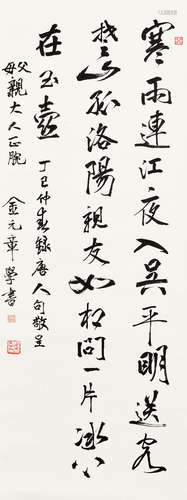 寒雨連江夜入吴平明送客
楚山孤洛陽親友如相問一片冰心
在玉壺
丁巳仲春錄唐人句敬呈
父母親大人正腕
金元章學書